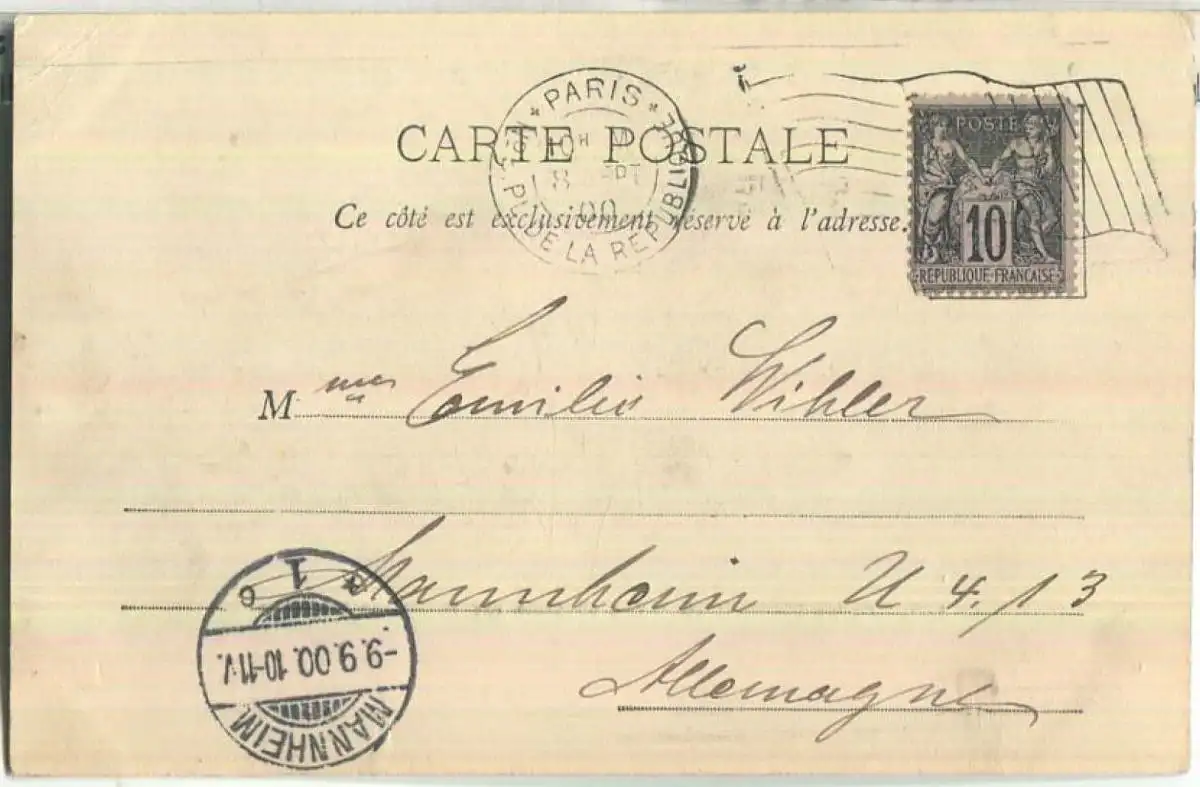 CARTE POSTALE
Ce côté est exclusivement réservé à l'adresse.
PARIS
PL. DE LA REPUBLIQUE
8 SEPT
00
POSTE
10
REPUBLIQUE FRANÇAISE
Mme Emilie Wihler
Mannheim U 4. 13
Allemagne
MANNHEIM.
-9.9.00.10-11V.
* 1 c